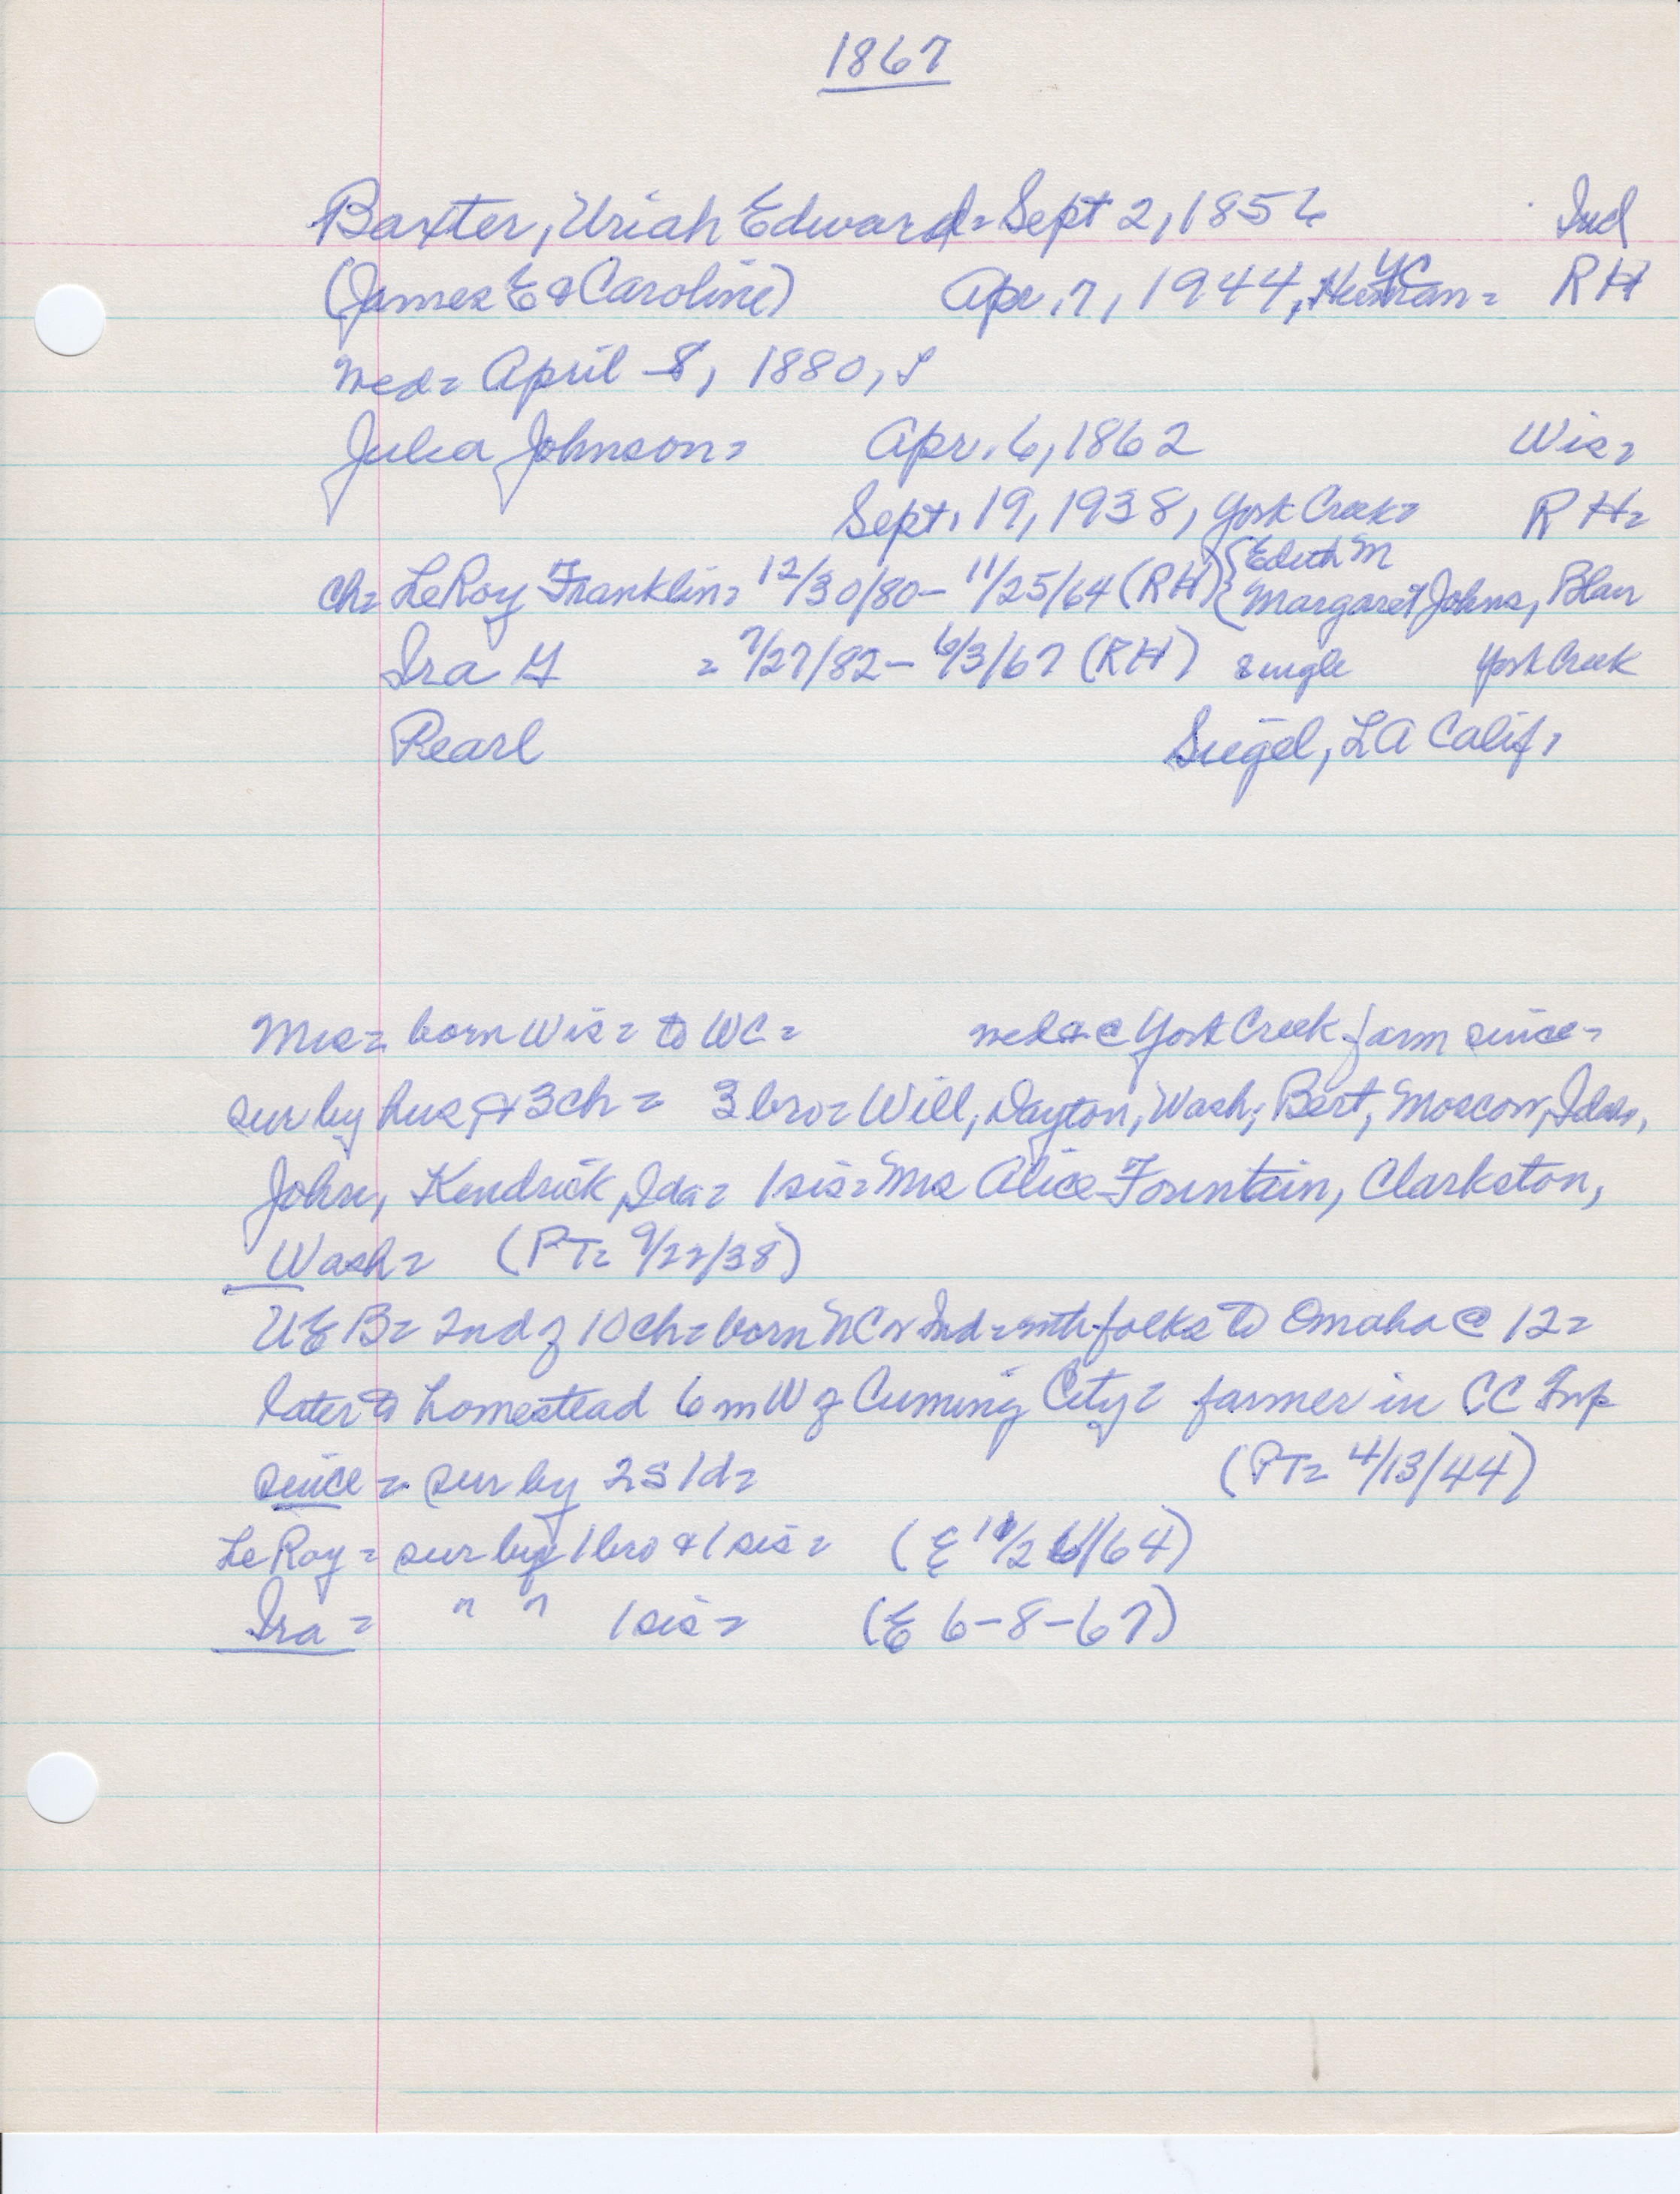 1867
Baxter, Uriah Edward = Sept 2, 1856 Ind
(James E & Caroline) Apr. 7, 1944, Herman = YC RH
Med = April 8, 1880, S
Julia Johnson = Apr. 6, 1862 Wis =
Sept. 19, 1938, York Creek = RH =
ch = LeRoy Franklin = 12/30/80 - 11/25/64 (RH) { Edith M
Margaret Johns, Blair
Ira G = 7/27/82 - 6/3/67 (RH) single York Creek
Pearl Siegel, LA Calif,
Mrs = born Wis = to WC = med & @ York Creek farm since =
sur by hus, & 3 ch = 3 bro = Will, Dayton, Wash; Bert, Moscow, Idaho,
John, Kendrick, Ida = 1 sis = Mrs Alice Fountain, Clarkston,
Wash = (PT = 9/22/38)
UEB = 2nd of 10 ch = born NC or Ind = with folks to Omaha @ 12 =
later to homestead 6 m W of Cuming City = farmer in CC Twp
since = sur by 2 S 1 d = (PT = 4/13/44)
LeRoy = sur by 1 bro & 1 sis = (E 11/26/64)
Ira = " " 1 sis = (E 6-8-67)